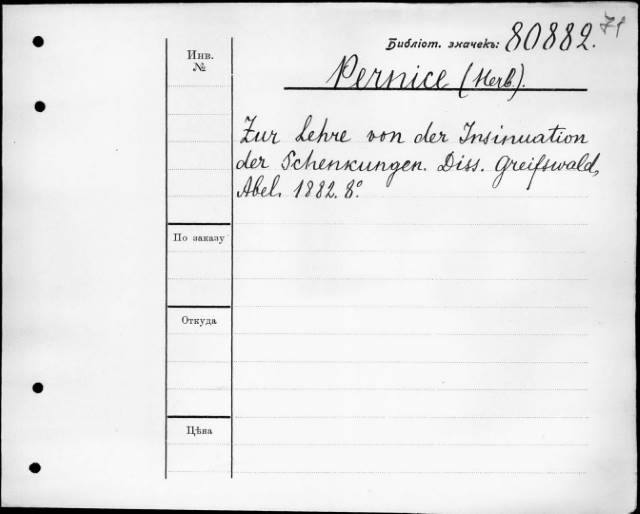 Библіот. значекъ: 80882. 71
Инв.
№
Pernice (Herb.).
Zur Lehre von der Insinuation
der Schenkungen. Diss. Greifswald,
Abel. 1882. 8º.
По заказу
Откуда
Цѣна